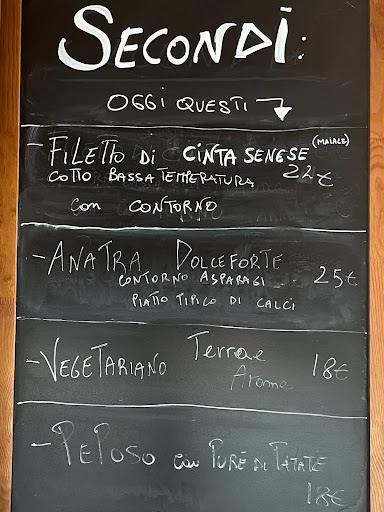 SECONDİ:
OGGI QUESTI
- FILETTO DI CINTA SENESE (MAIALE)
COTTO BASSA TEMPERATURA 22€
CON CONTORNO
- ANATRA DOLCEFORTE
CONTORNO ASPARAGI .. 25€
PIATTO TIPICO DI CALCI
- VEGETARIANO Terrae 18€
Aroma
- PEPOSO CON PURÉ DI PATATE
18€